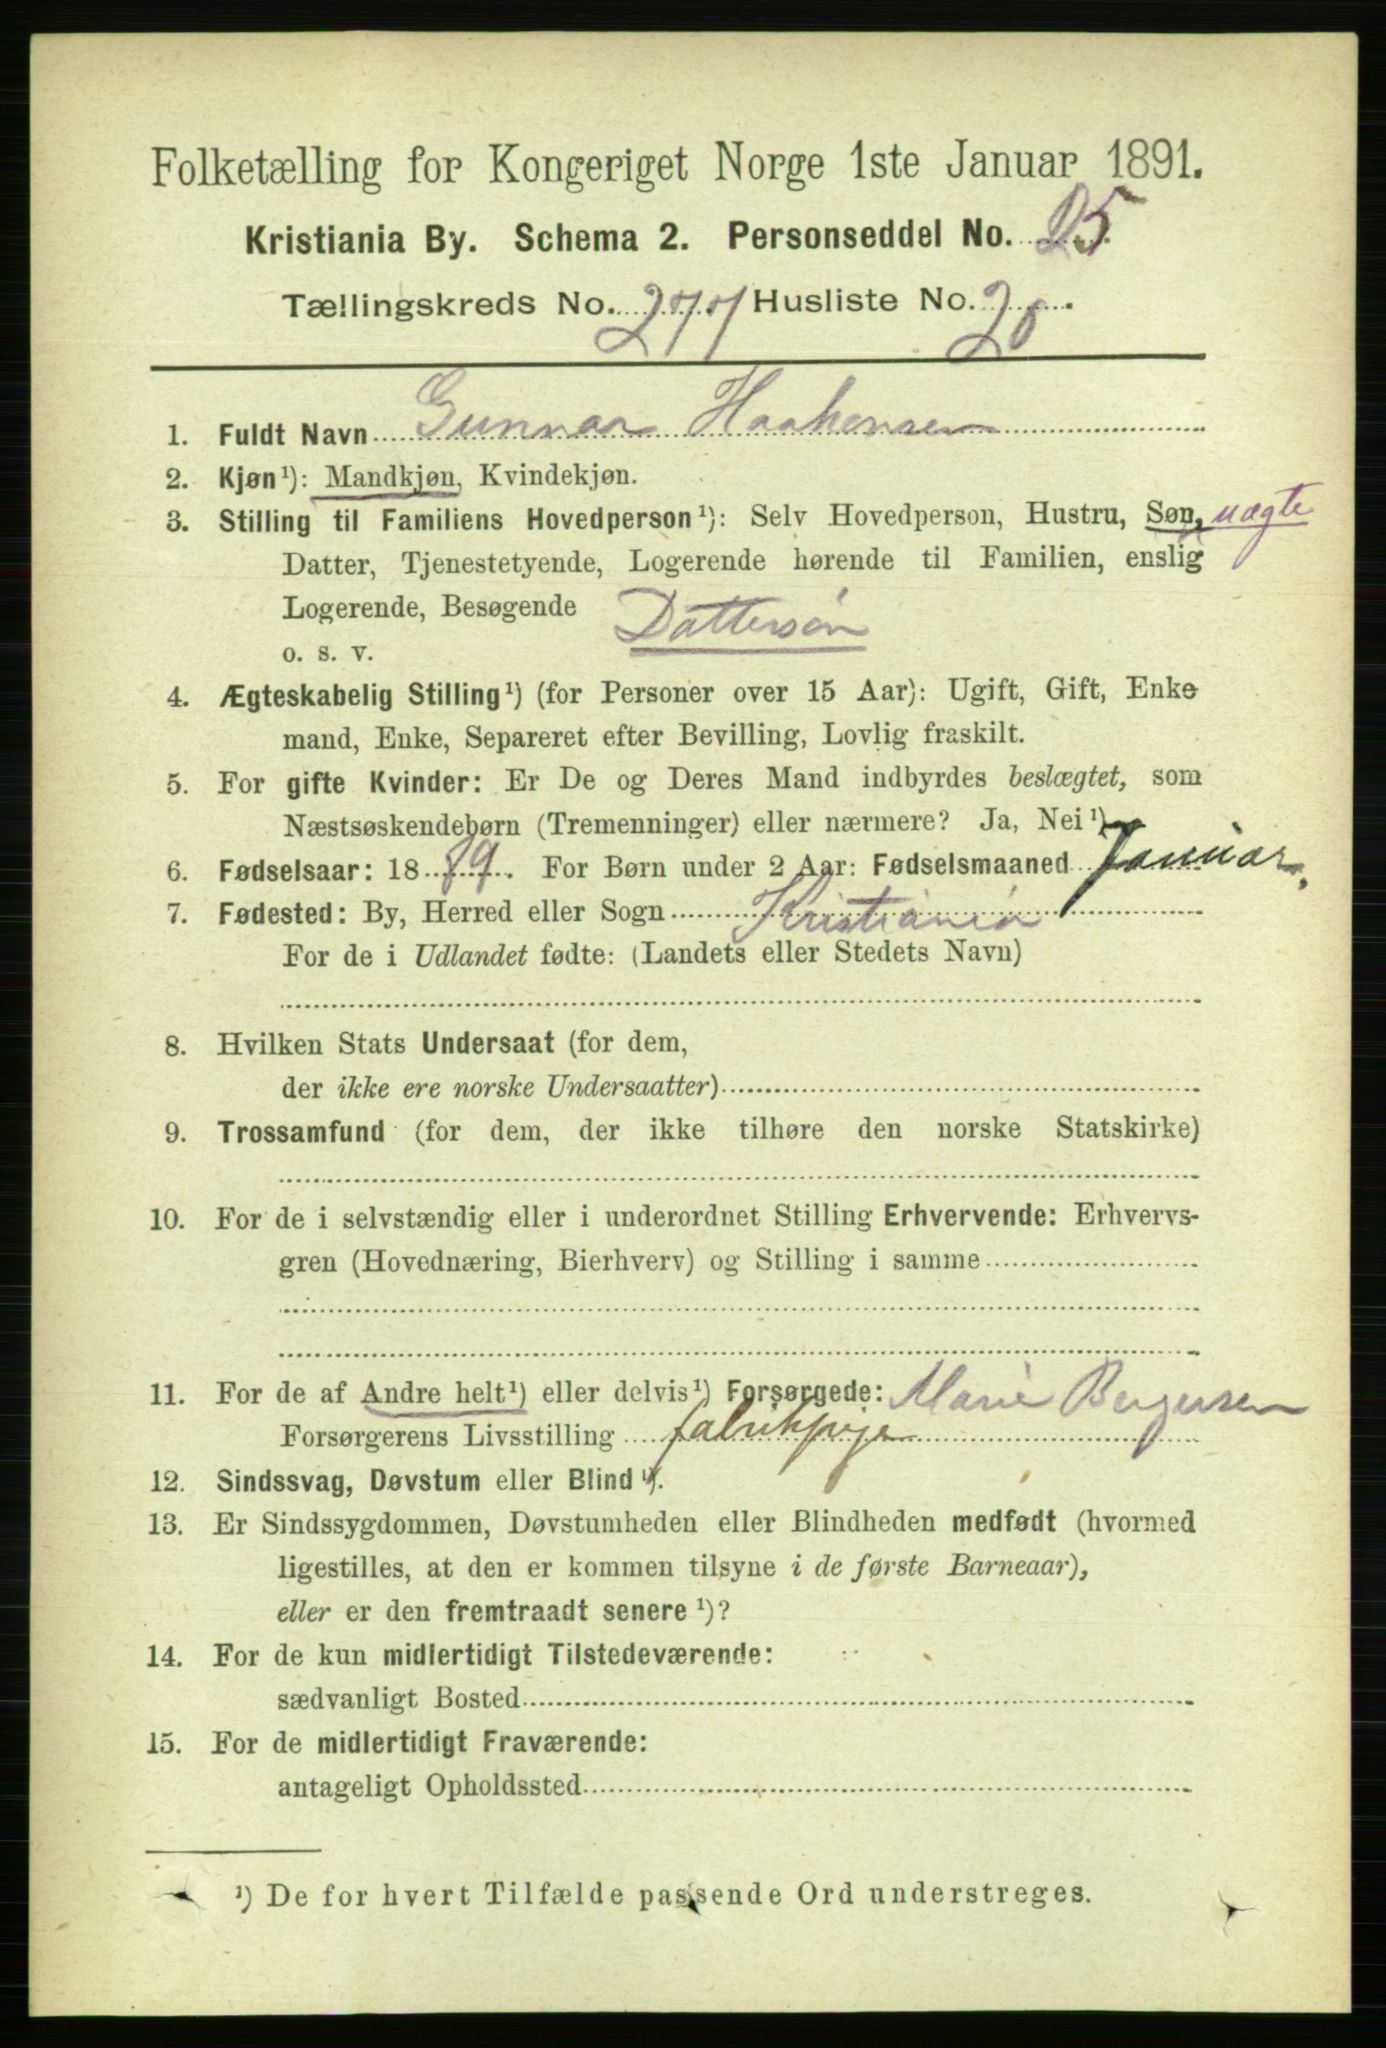 Folketælling for Kongeriget Norge 1ste Januar 1891.
Kristiania By. Schema 2. Personseddel No. 25.
Tællingskreds No. 277 Husliste No. 20.
1. Fuldt Navn Gunnar Haakensen
2. Kjøn¹): Mandkjøn, Kvindekjøn.
3. Stilling til Familiens Hovedperson¹): Selv Hovedperson, Hustru, Søn, uægte
Datter, Tjenestetyende, Logerende hørende til Familien, enslig
Logerende, Besøgende Dattersøn
o. s. v.
4. Ægteskabelig Stilling¹) (for Personer over 15 Aar): Ugift, Gift, Enke
mand, Enke, Separeret efter Bevilling, Lovlig fraskilt.
5. For gifte Kvinder: Er De og Deres Mand indbyrdes beslægtet, som
Næstsøskendebørn (Tremenninger) eller nærmere? Ja, Nei¹)
6. Fødselsaar: 1889. For Børn under 2 Aar: Fødselsmaaned Januar.
7. Fødested: By, Herred eller Sogn Kristiania
For de i Udlandet fødte: (Landets eller Stedets Navn)
8. Hvilken Stats Undersaat (for dem,
der ikke ere norske Undersaatter)
9. Trossamfund (for dem, der ikke tilhøre den norske Statskirke)
10. For de i selvstændig eller i underordnet Stilling Erhvervende: Erhvervs-
gren (Hovednæring, Bierhverv) og Stilling i samme
11. For de af Andre helt¹) eller delvis¹) Forsørgede: Marie Bergersen
Forsørgerens Livsstilling fabrikpige
12. Sindssvag, Døvstum eller Blind¹).
13. Er Sindssygdommen, Døvstumheden eller Blindheden medfødt (hvormed
ligestilles, at den er kommen tilsyne i de første Barneaar),
eller er den fremtraadt senere¹)?
14. For de kun midlertidigt Tilstedeværende:
sædvanligt Bosted
15. For de midlertidigt Fraværende:
antageligt Opholdssted
¹) De for hvert Tilfælde passende Ord understreges.